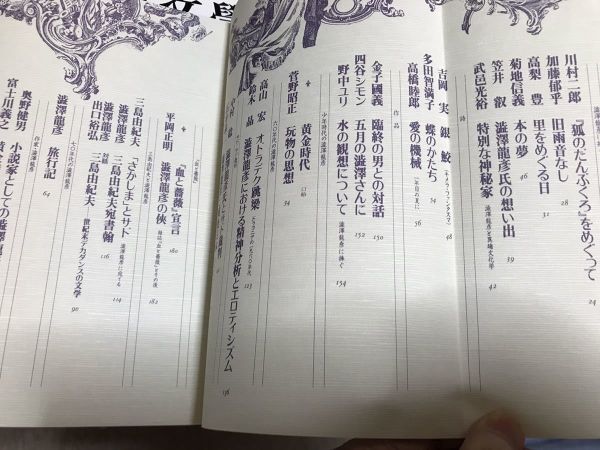 川村二郎 『狐のだんぶくろ』をめぐって 24
加藤郁乎 旧雨音なし 28
高梨 豊 里をめぐる日 31
菊地信義 本の夢 46
笠井 叡 澁澤龍彦氏の想い出 39
武邑光裕 特別な神秘家 澁澤龍彦と異端文化学 42
詩
吉岡 実 銀鮫 48
多田智満子 蝶のかたち 54
高橋睦郎 愛の機械
作品
金子國義 臨終の男との対話 150
四谷シモン 五月の澁澤さんに 152
野中ユリ 水の観想について 154
少年時代の澁澤龍彦
菅野昭正 黄金時代 口絵
玩物の思想 34
六〇年代の澁澤龍彦
高山 宏 オトラント跳梁 123
鈴木 晶 澁澤龍彦における精神分析とエロティシズム
136
『血と薔薇』
平岡正明 『血と薔薇』宣言 180
澁澤龍彦の俠 雑誌『血と薔薇』とその後 182
三島由紀夫と澁澤龍彦
三島由紀夫 「さかしま」とサド 澁澤龍彦に充てる 114
澁澤龍彦 三島由紀夫宛書翰 116
出口裕弘 対談 三島由紀夫 世紀末デカダンスの文学 90
七〇年代の澁澤龍彦
澁澤龍彦 旅行記 64
作家・澁澤龍彦
奥野健男 小説家としての澁澤龍
富士川義之